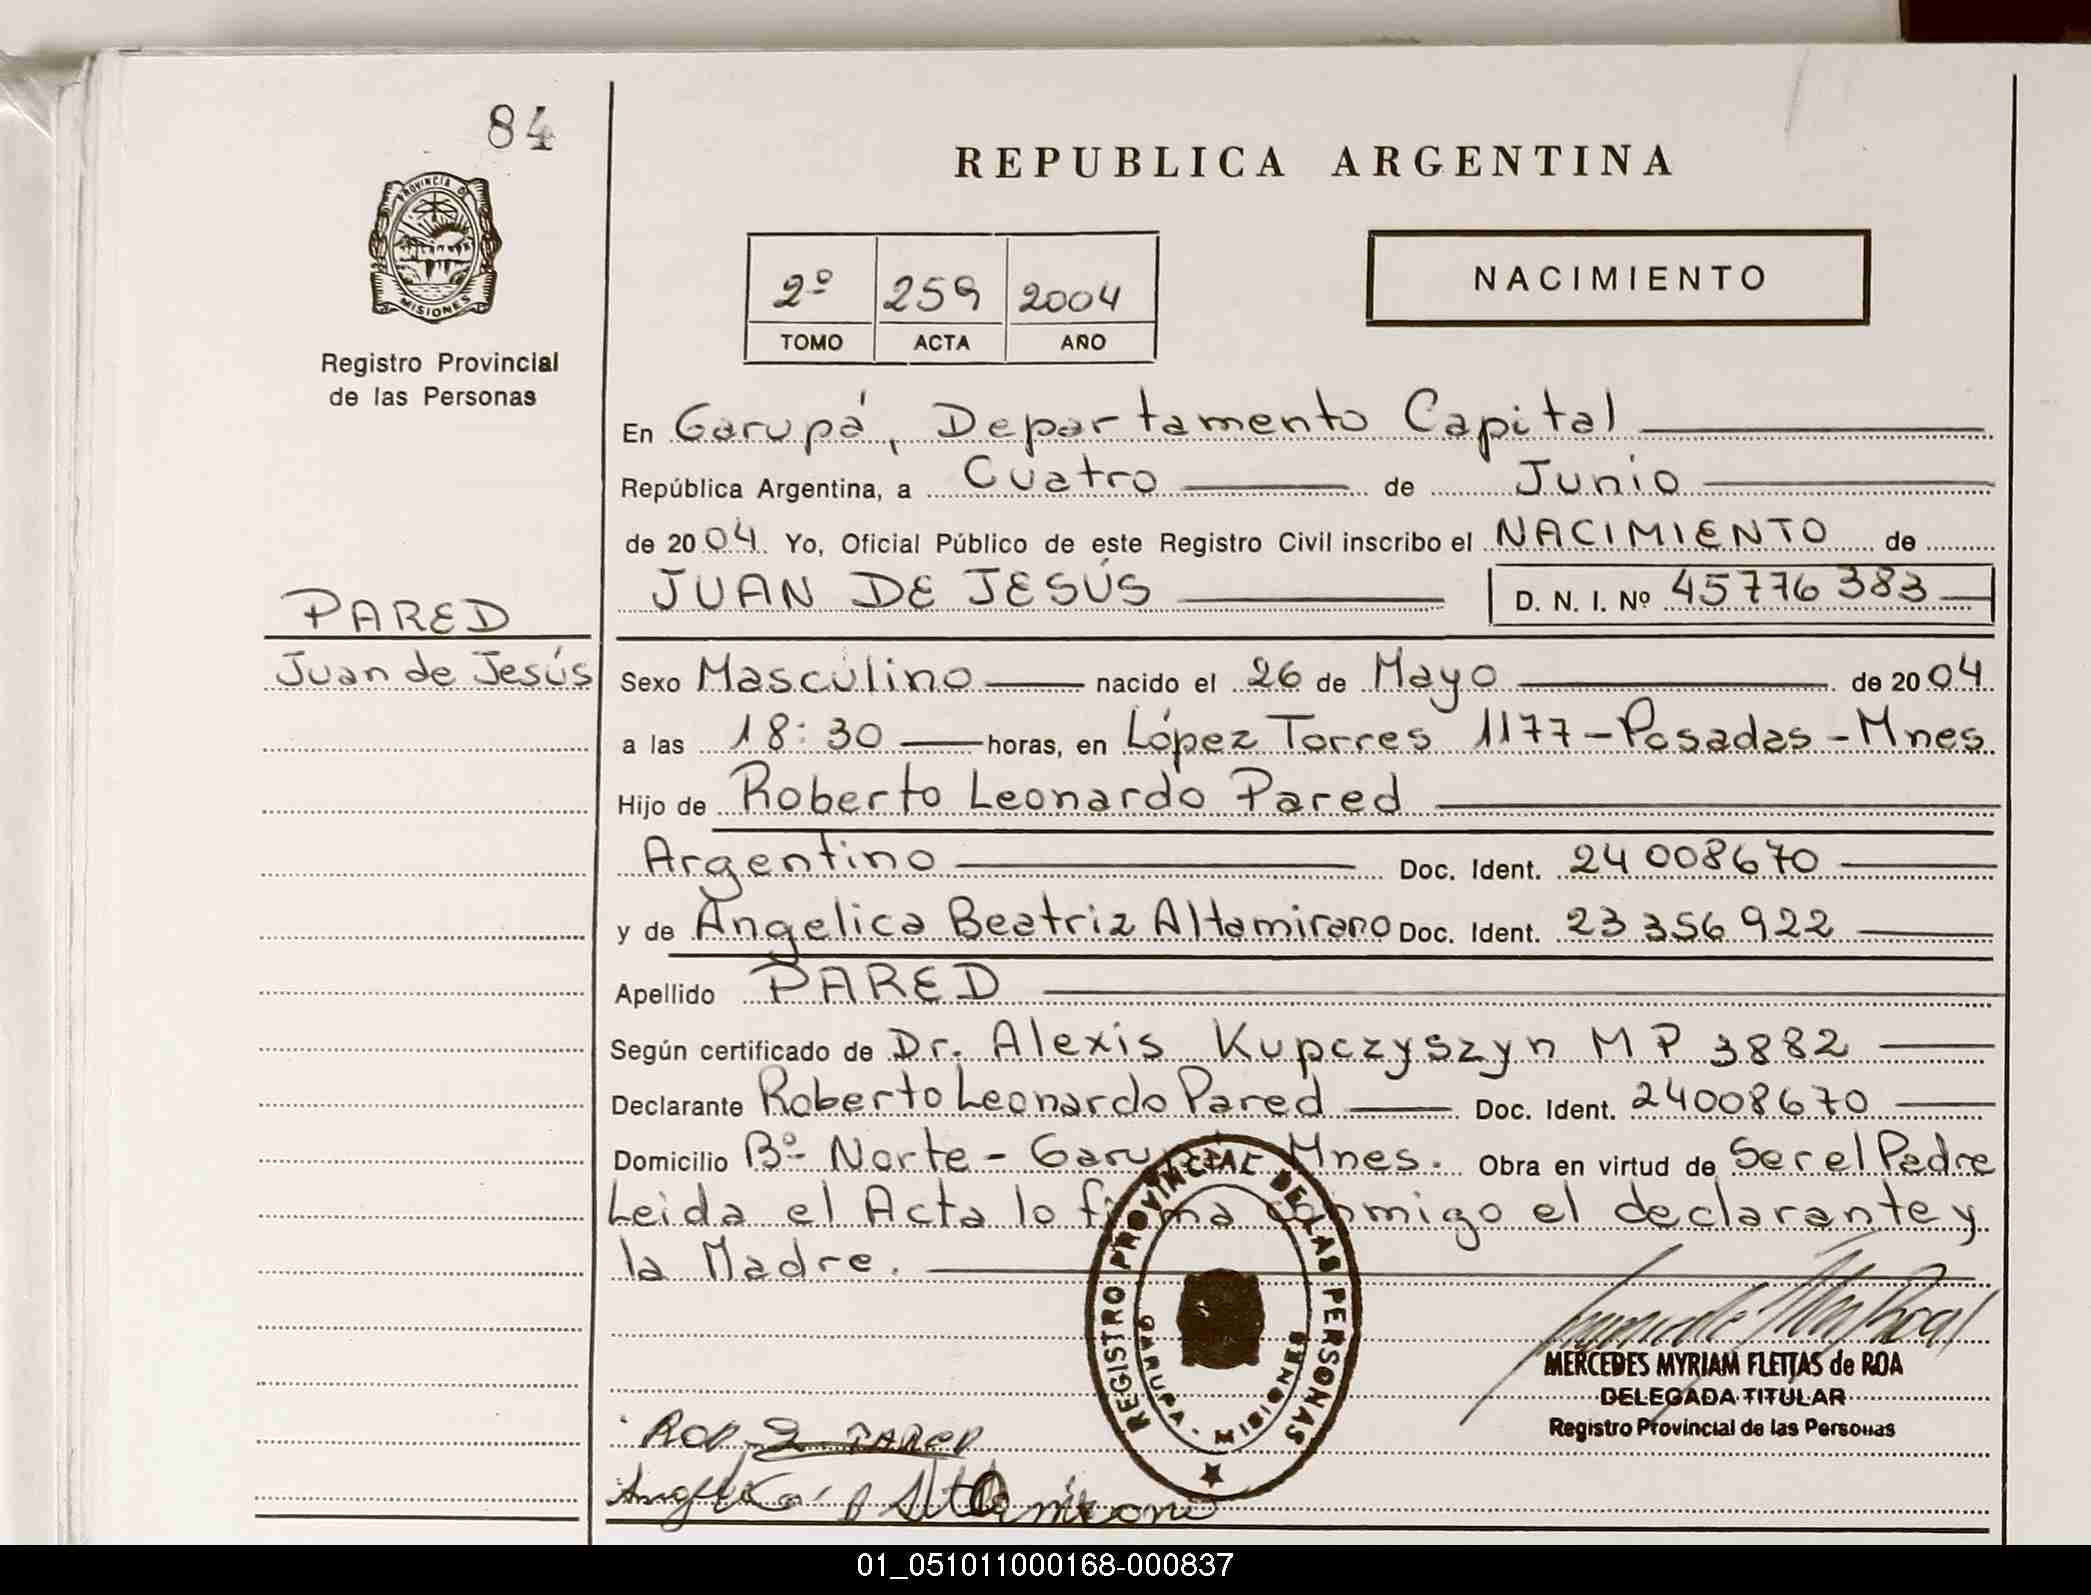 84
REPUBLICA ARGENTINA
PROVINCIA D
MISIONES
Registro Provincial
de las Personas
2º 259 2004
TOMO ACTA AÑO
NACIMIENTO
En Garupá, Departamento Capital
República Argentina, a Cuatro de Junio
de 2004. Yo, Oficial Público de este Registro Civil inscribo el NACIMIENTO de
JUAN DE JESÚS D. N. I. Nº 45776383
PARED
Juan de Jesús
Sexo Masculino nacido el 26 de Mayo de 2004
a las 18:30 horas, en López Torres 1177-Posadas-Mnes
Hijo de Roberto Leonardo Pared
Argentino Doc. Ident. 24 008670
y de Angelica Beatriz Altamirano Doc. Ident. 23 356 922
Apellido PARED
Según certificado de Dr. Alexis Kupczyszyn M P 3882
Declarante Roberto Leonardo Pared Doc. Ident. 24008670
Domicilio Bº Norte - Garu Mnes. Obra en virtud de Ser el Padre
Leida el Acta lo firma conmigo el declarante y
la Madre.
REGISTRO PROVINCIAL DE LAS PERSONAS
GARUPA - MISIONES
MERCEDES MYRIAM FLEITAS de ROA
DELEGADA TITULAR
Registro Provincial de las Personas
PARED
01_051011000168-000837